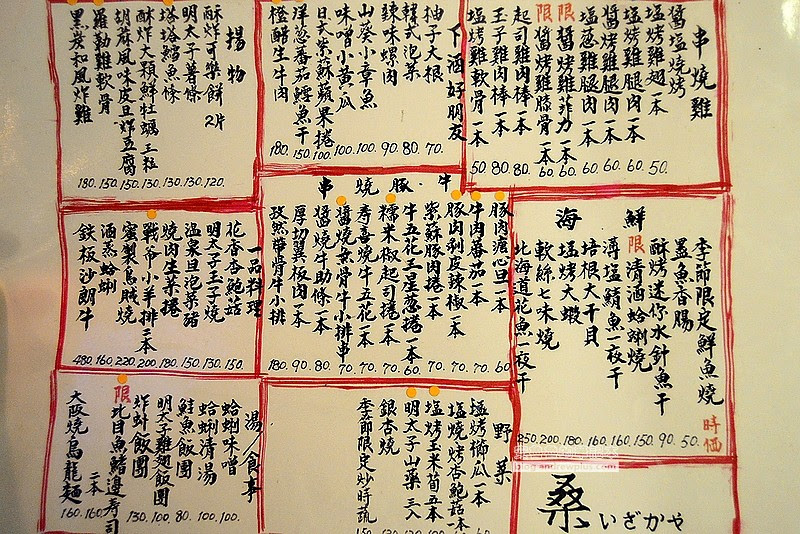 串燒雞
醬塩燒烤
塩烤雞翅一本 50.
塩烤雞腿肉一本 60.
塩蔥雞腿肉一本 60.
醬烤雞腿肉一本 60.
限 醬烤雞菲力一本 60.
限 醬烤雞膝骨一本 60.
起司雞肉棒一本 80.
玉子雞肉棒一本 80.
塩烤雞軟骨一本 50
下酒好朋友
柚子大根 70.
韓式泡菜 80.
辣味螺肉 90.
山葵小章魚 100.
味噌小黃瓜 100.
日式紫蘇蘋果捲 100
洋蔥番茄鱈魚干 150.
橙醋生牛肉 180.
揚物
酥炸可樂餅 2片 120.
明太子薯條 130.
塔塔鱈魚條 130.
酥炸大顆鮮牡蠣 三粒 130.
胡麻風味皮旦炸豆腐 150.
羅勒雞軟骨 150.
黑炭和風炸雞 180.
海鮮
季節限定鮮魚燒 時価
墨魚香腸 50.
酥烤迷你水針魚干 90.
限 清酒蛤蜊燒 150.
薄塩鯖魚一夜干 160.
培根大干貝 160.
塩烤大蝦 180.
軟絲七味燒 200.
北海道花魚一夜干 250.
串燒豚.牛
豚肉溏心旦一本 60.
豚肉剝皮辣椒一本 70.
牛肉番茄一本 70.
紫蘇豚肉捲一本 70.
牛五花三星蔥捲一本 60
糯米椒起司捲一本 70.
壽喜燒牛五花一本 70.
醬燒無骨牛小排串 70
醬燒牛助條一本 80.
厚切翼板肉一本 90.
孜然帶骨牛小排 180.
一品料理
花香杏鮑菇 150.
明太子玉子燒 130.
溫泉旦泡菜豬 150.
燒肉生菜捲 180
戰帝小羊排二本 200.
蜜製烏賊燒 220
酒蒸蛤蜊 160
鐵板沙朗牛 480
野菜
塩烤櫛瓜一本
塩燒烤杏鮑菇一本
塩烤玉米筍五本
明太子山藥 三入
銀杏燒
季節限定炒時蔬
湯/食事
蛤蜊味噌 100.
蛤蜊清湯 100.
鮭魚飯團 80.
明太子雞翅飯團 100.
炸蚪飯團 130.
限 比目魚鰭邊壽司 二本 160.
大阪燒烏龍麵 160.
桑 いざかや
blog.andrewplus.com